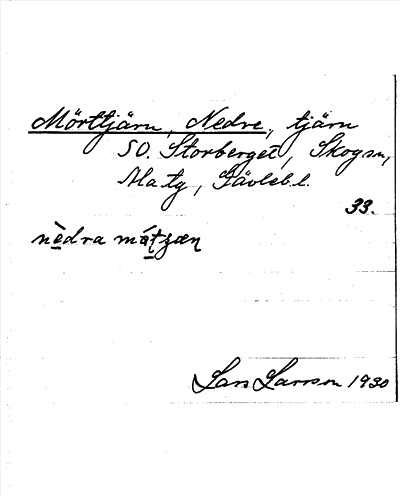 Mörttjärn, Nedre, tjärn
SO. Storberget, Skogsn,
Ma tg, Gävleb.l.
33.
nèdra
Lars Larsson 1930